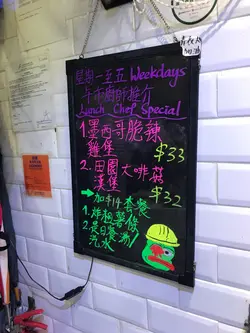 星期一至五 Weekdays
午市廚師推介
Lunch Chef Special
1.墨西哥脆辣
雞堡
$33
2.田園大啡菇
漢堡
$32
→加$14套餐
1.炸粗薯條
2.是日餐湯/
汽水